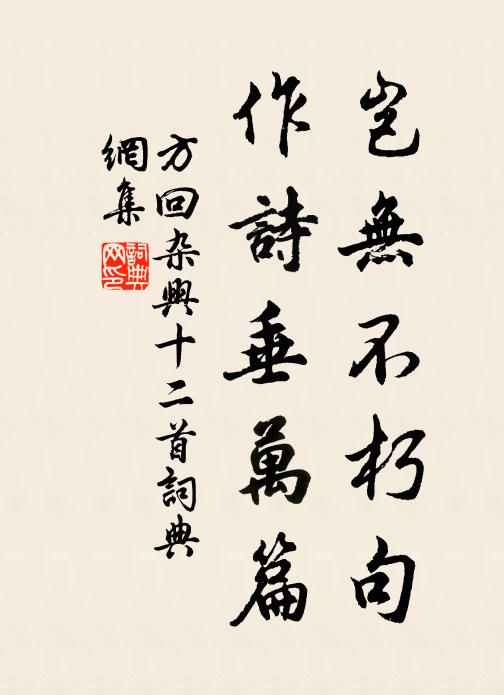 岂無不朽句
作詩垂萬篇
方回杂興十二首詞典
網集
詞典
网印